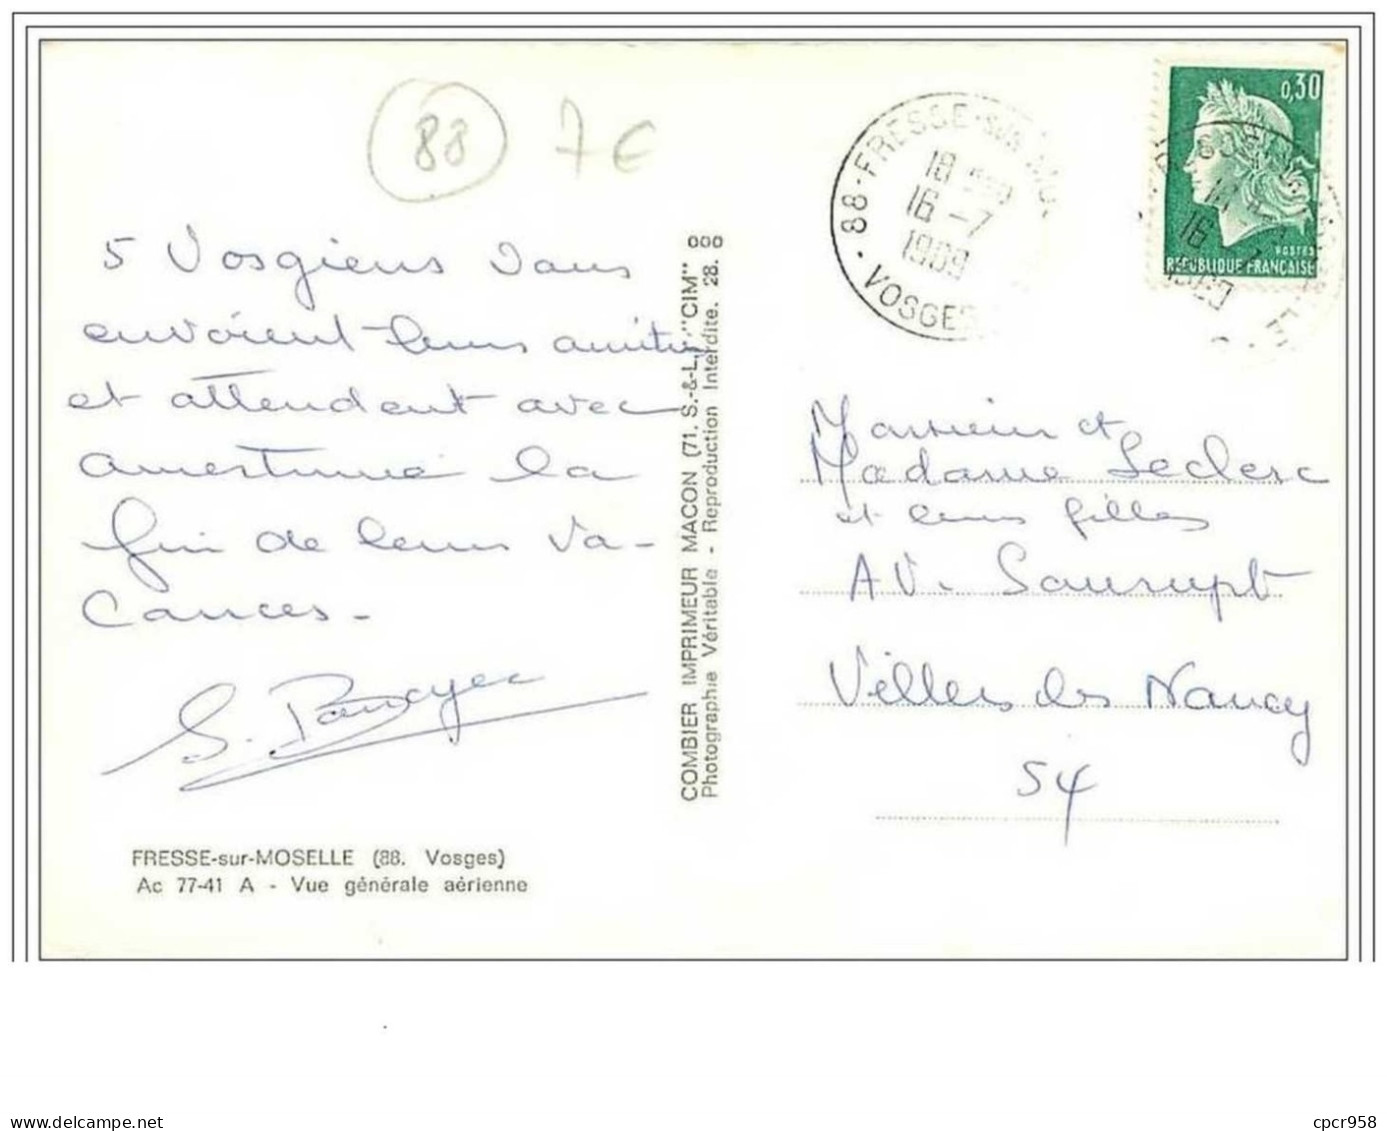 88 7 €
5 Vosgiens vous
envoient leurs amitiés
et attendent avec
amertume la
fin de leurs va-
cances.
FRESSE-sur-MOSELLE (88. Vosges)
Ac 77-41 A - Vue générale aérienne
COMBIER IMPRIMEUR MACON (71. S.-&-L.) "CIM"
Photographie Véritable - Reproduction Interdite. 28. 000
88-FRESSE-SUR-MO
18
16-7
1969
VOSGES
0,30
POSTES
REPUBLIQUE FRANÇAISE
Monsieur et
Madame Leclerc
et leurs filles
AV. Saurupt
Villers les Nancy
54
cpcr958